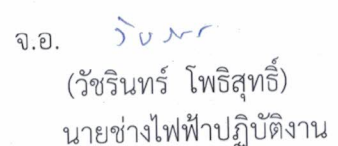 จ.อ.
(วัชรินทร์ โพธิสุทธิ์)
นายช่างไฟฟ้าปฏิบัติงาน